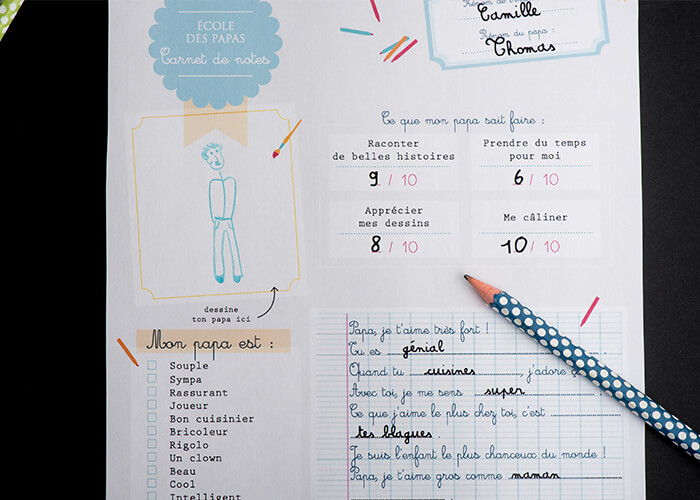 ÉCOLE
DES PAPAS
Carnet de notes
Camille
Prénom du papa :
Thomas
Ce que mon papa sait faire :
Raconter
de belles histoires
9 / 10
Prendre du temps
pour moi
6 / 10
Apprécier
mes dessins
8 / 10
Me câliner
10 / 10
dessine
ton papa ici
Mon papa est :
Souple
Sympa
Rassurant
Joueur
Bon cuisinier
Bricoleur
Rigolo
Un clown
Beau
Cool
Intelligent
Papa, je t'aime très fort !
Tu es génial
Quand tu cuisines, j'adore
Avec toi, je me sens super
Ce que j'aime le plus chez toi, c'est
tes blagues.
Je suis l'enfant le plus chanceux du monde !
Papa, je t'aime gros comme maman